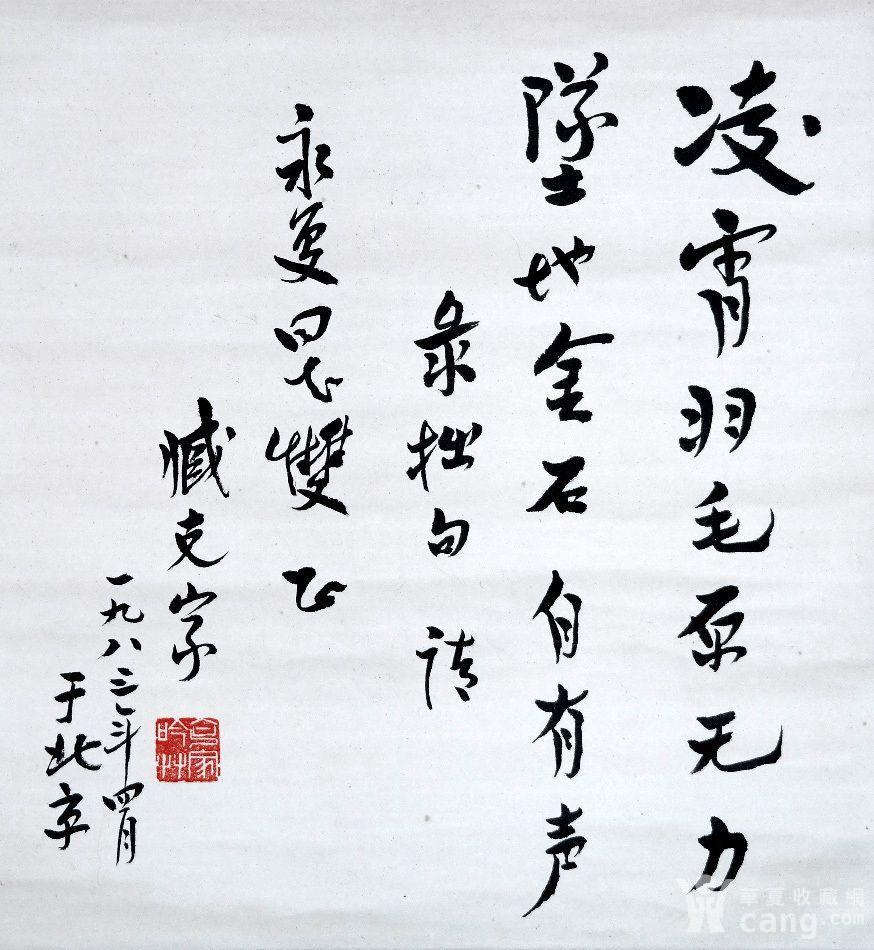 凌霄羽毛原无力
墜地金石自有声
录拙句 请
永夏 雙正
臧克家
一九八三年四月
于北京
華夏收藏網
cang.com